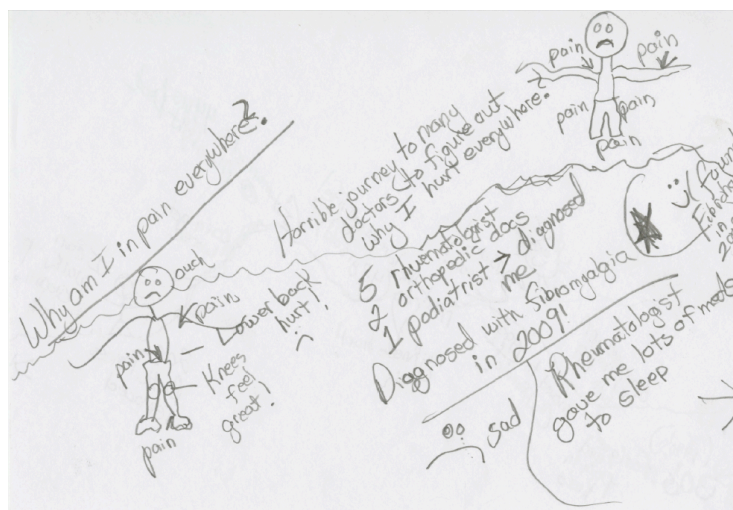 Why am I in pain everywhere?
ouch
pain
Lower back
hurt!
pain
Knees
feel
great!
pain
Horrible journey to many
doctors to figure out
why I hurt everywhere?
pain
pain
pain
pain
pain
5 rhuematologist
2 orthopedic docs
1 podiatrist → diagnosed
me
Diagnosed with fibromyalgia
in 2009!
sad
Rheumatologist
gave me lots of meds
to sleep